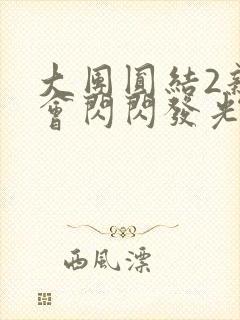 大團圓結2新
會閃閃發光
西風漂